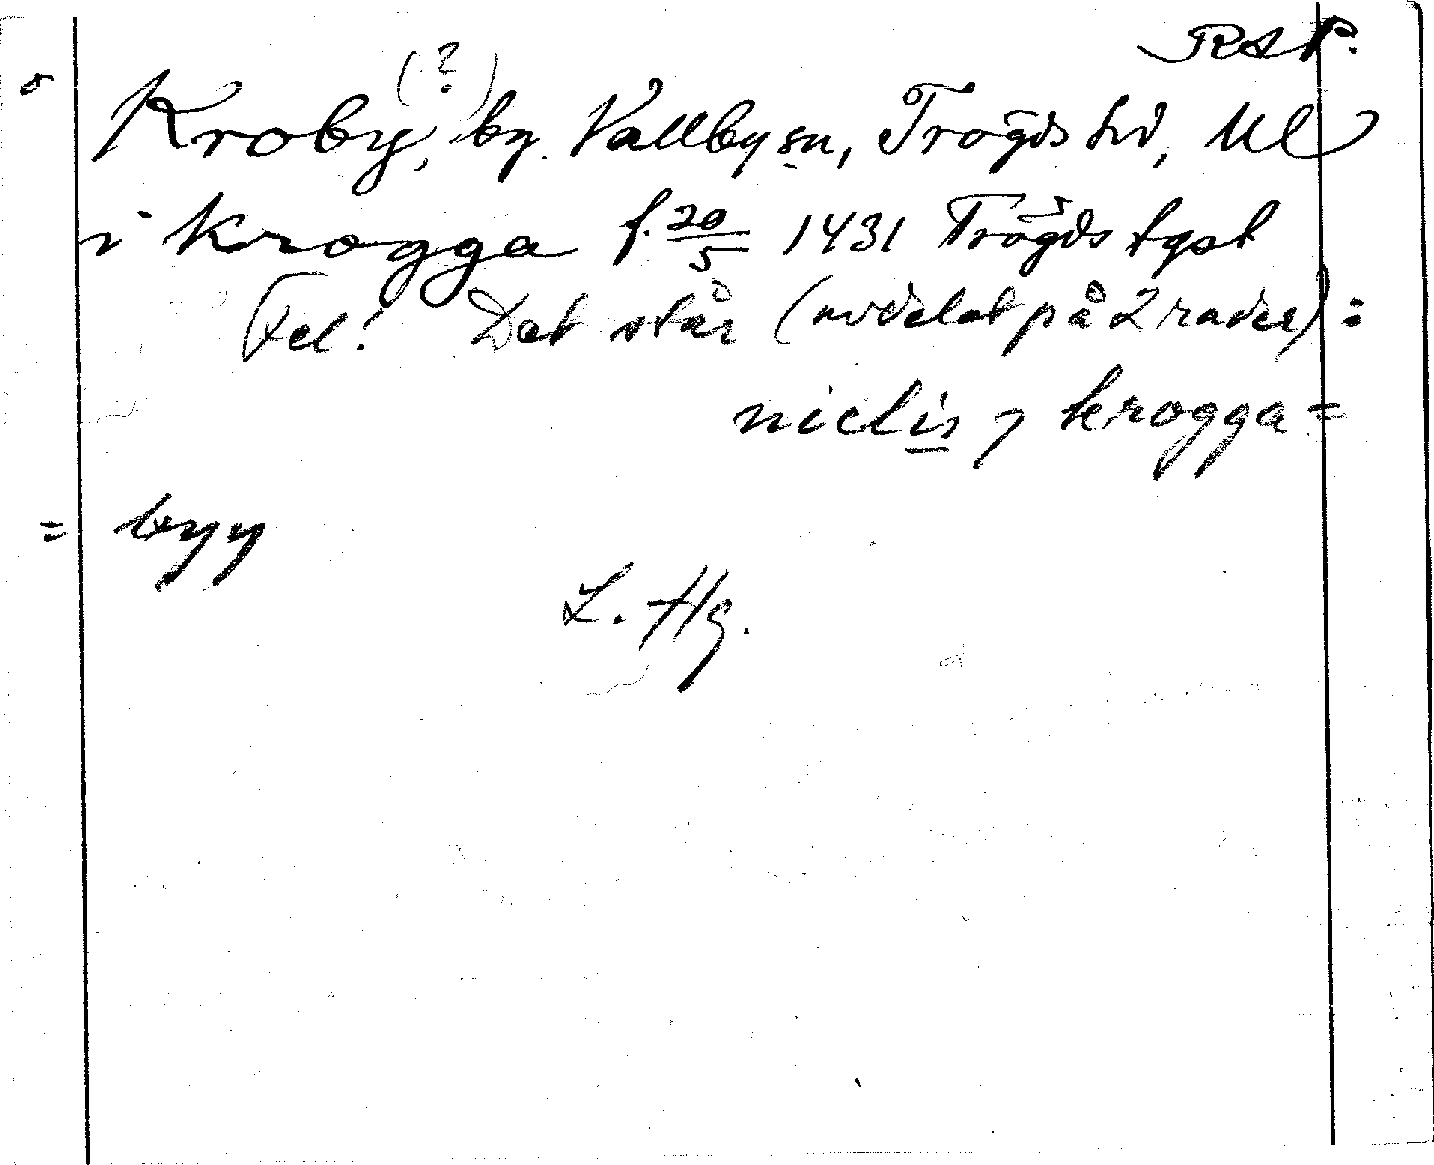 RAP.
(?)
Kroby, by. Vallby sn, Trögds hd, Ul
i krogga f. 20/5 1431 Trögds tgst
Fel! Det står (avdelat på 2 rader) :
niclis ⁊ krogga =
= byy
L. Hg.